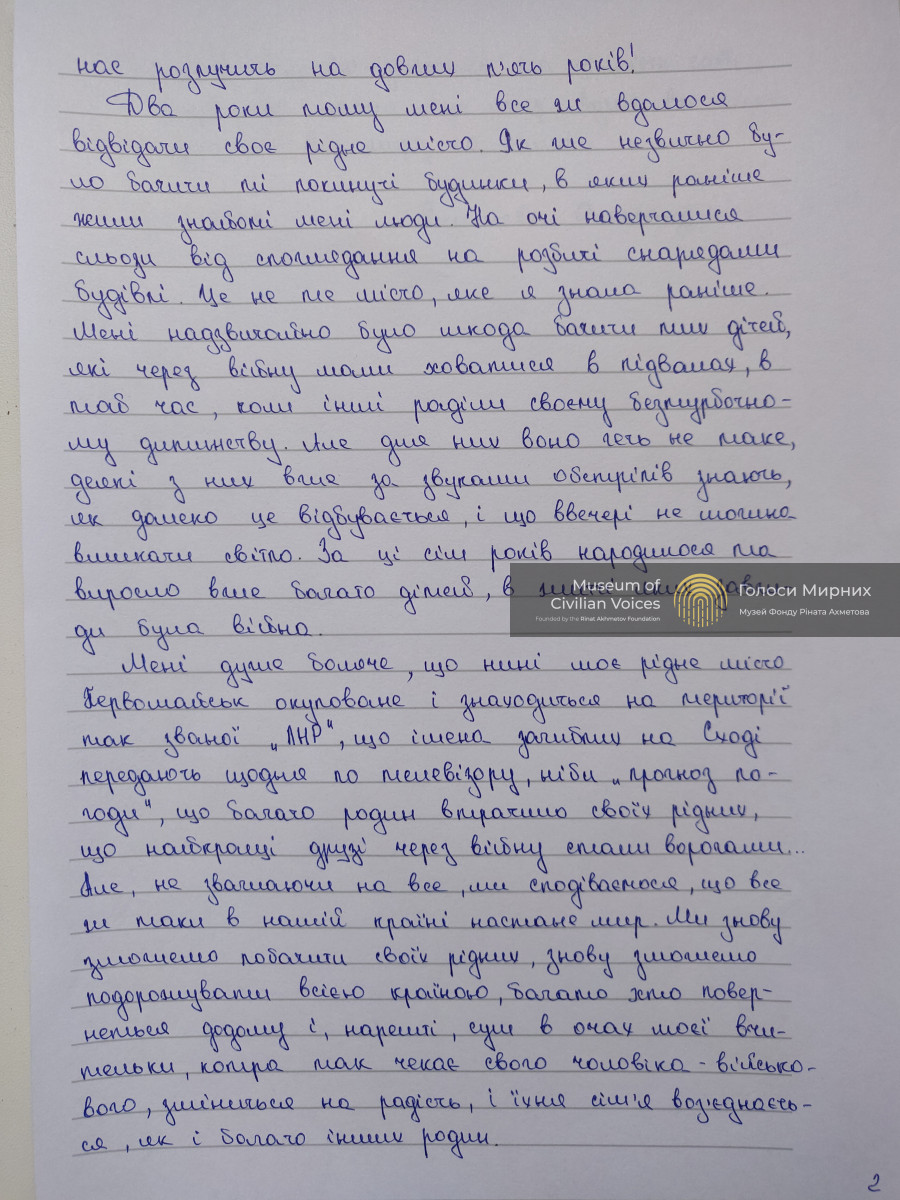 нас розлучить на довгих п'ять років!
Два роки тому мені все ж вдалося
відвідати своє рідне місто. Як же незвично бу-
ло бачити ті покинуті будинки, в яких раніше
жили знайомі мені люди. На очі наверталися
сльози від споглядання на розбиті снарядами
будівлі. Це не те місто, яке я знала раніше.
Мені надзвичайно було шкода бачити тих дітей,
які через війну мали ховатися в підвалах, в
той час, коли інші раділи своєму безтурботно-
му дитинству. Але для них воно геть не таке,
деякі з них вже за звуками обстрілів знають,
як далеко це відбувається, і що ввечері не можна
вмикати світло. За ці сім років народилося та
виросло вже багато дітей, в житті яких завж-
ди була війна.
Museum of
Civilian Voices
Founded by the Rinat Akhmetov Foundation
Голоси Мирних
Музей Фонду Ріната Ахметова
Мені дуже боляче, що нині моє рідне місто
Первомайськ окуповане і знаходиться на території
так званої „ЛНР", що імена загиблих на Сході
передають щодня по телевізору, ніби „прогноз по-
годи", що багато родин втратило своїх рідних,
що найкращі друзі через війну стали ворогами...
Але, не зважаючи на все, ми сподіваємося, що все
ж таки в нашій країні настане мир. Ми знову
зможемо побачити своїх рідних, знову зможемо
подорожувати всією країною, багато хто повер-
неться додому і, нарешті, сум в очах моєї вчи-
тельки, котра так чекає свого чоловіка - військо-
вого, зміниться на радість, і їхня сім'я возз'єднаєть-
ся, як і багато інших родин.
2